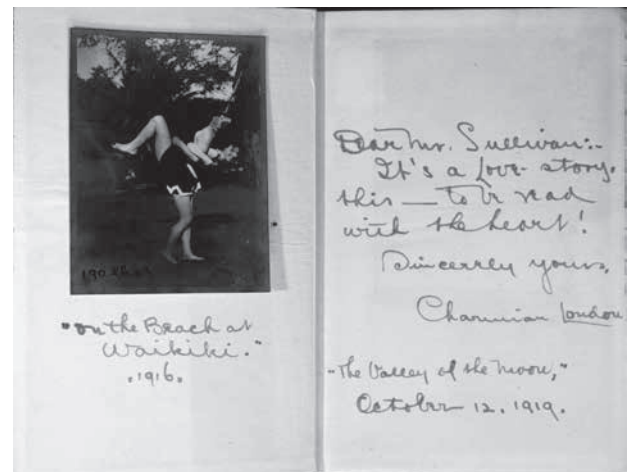 190 lbs.
"on the Beach at
Waikiki."
.1916.
Dear Mr. Sullivan:-
It's a love-story,
this — to be read
with the heart!
Sincerely yours,
Charmian London
"The Valley of the Moon,"
October 12, 1919.